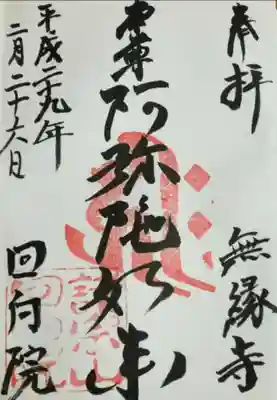 奉拝
無縁寺
阿弥陀如来
平成二九年
二月二十六日
回向院